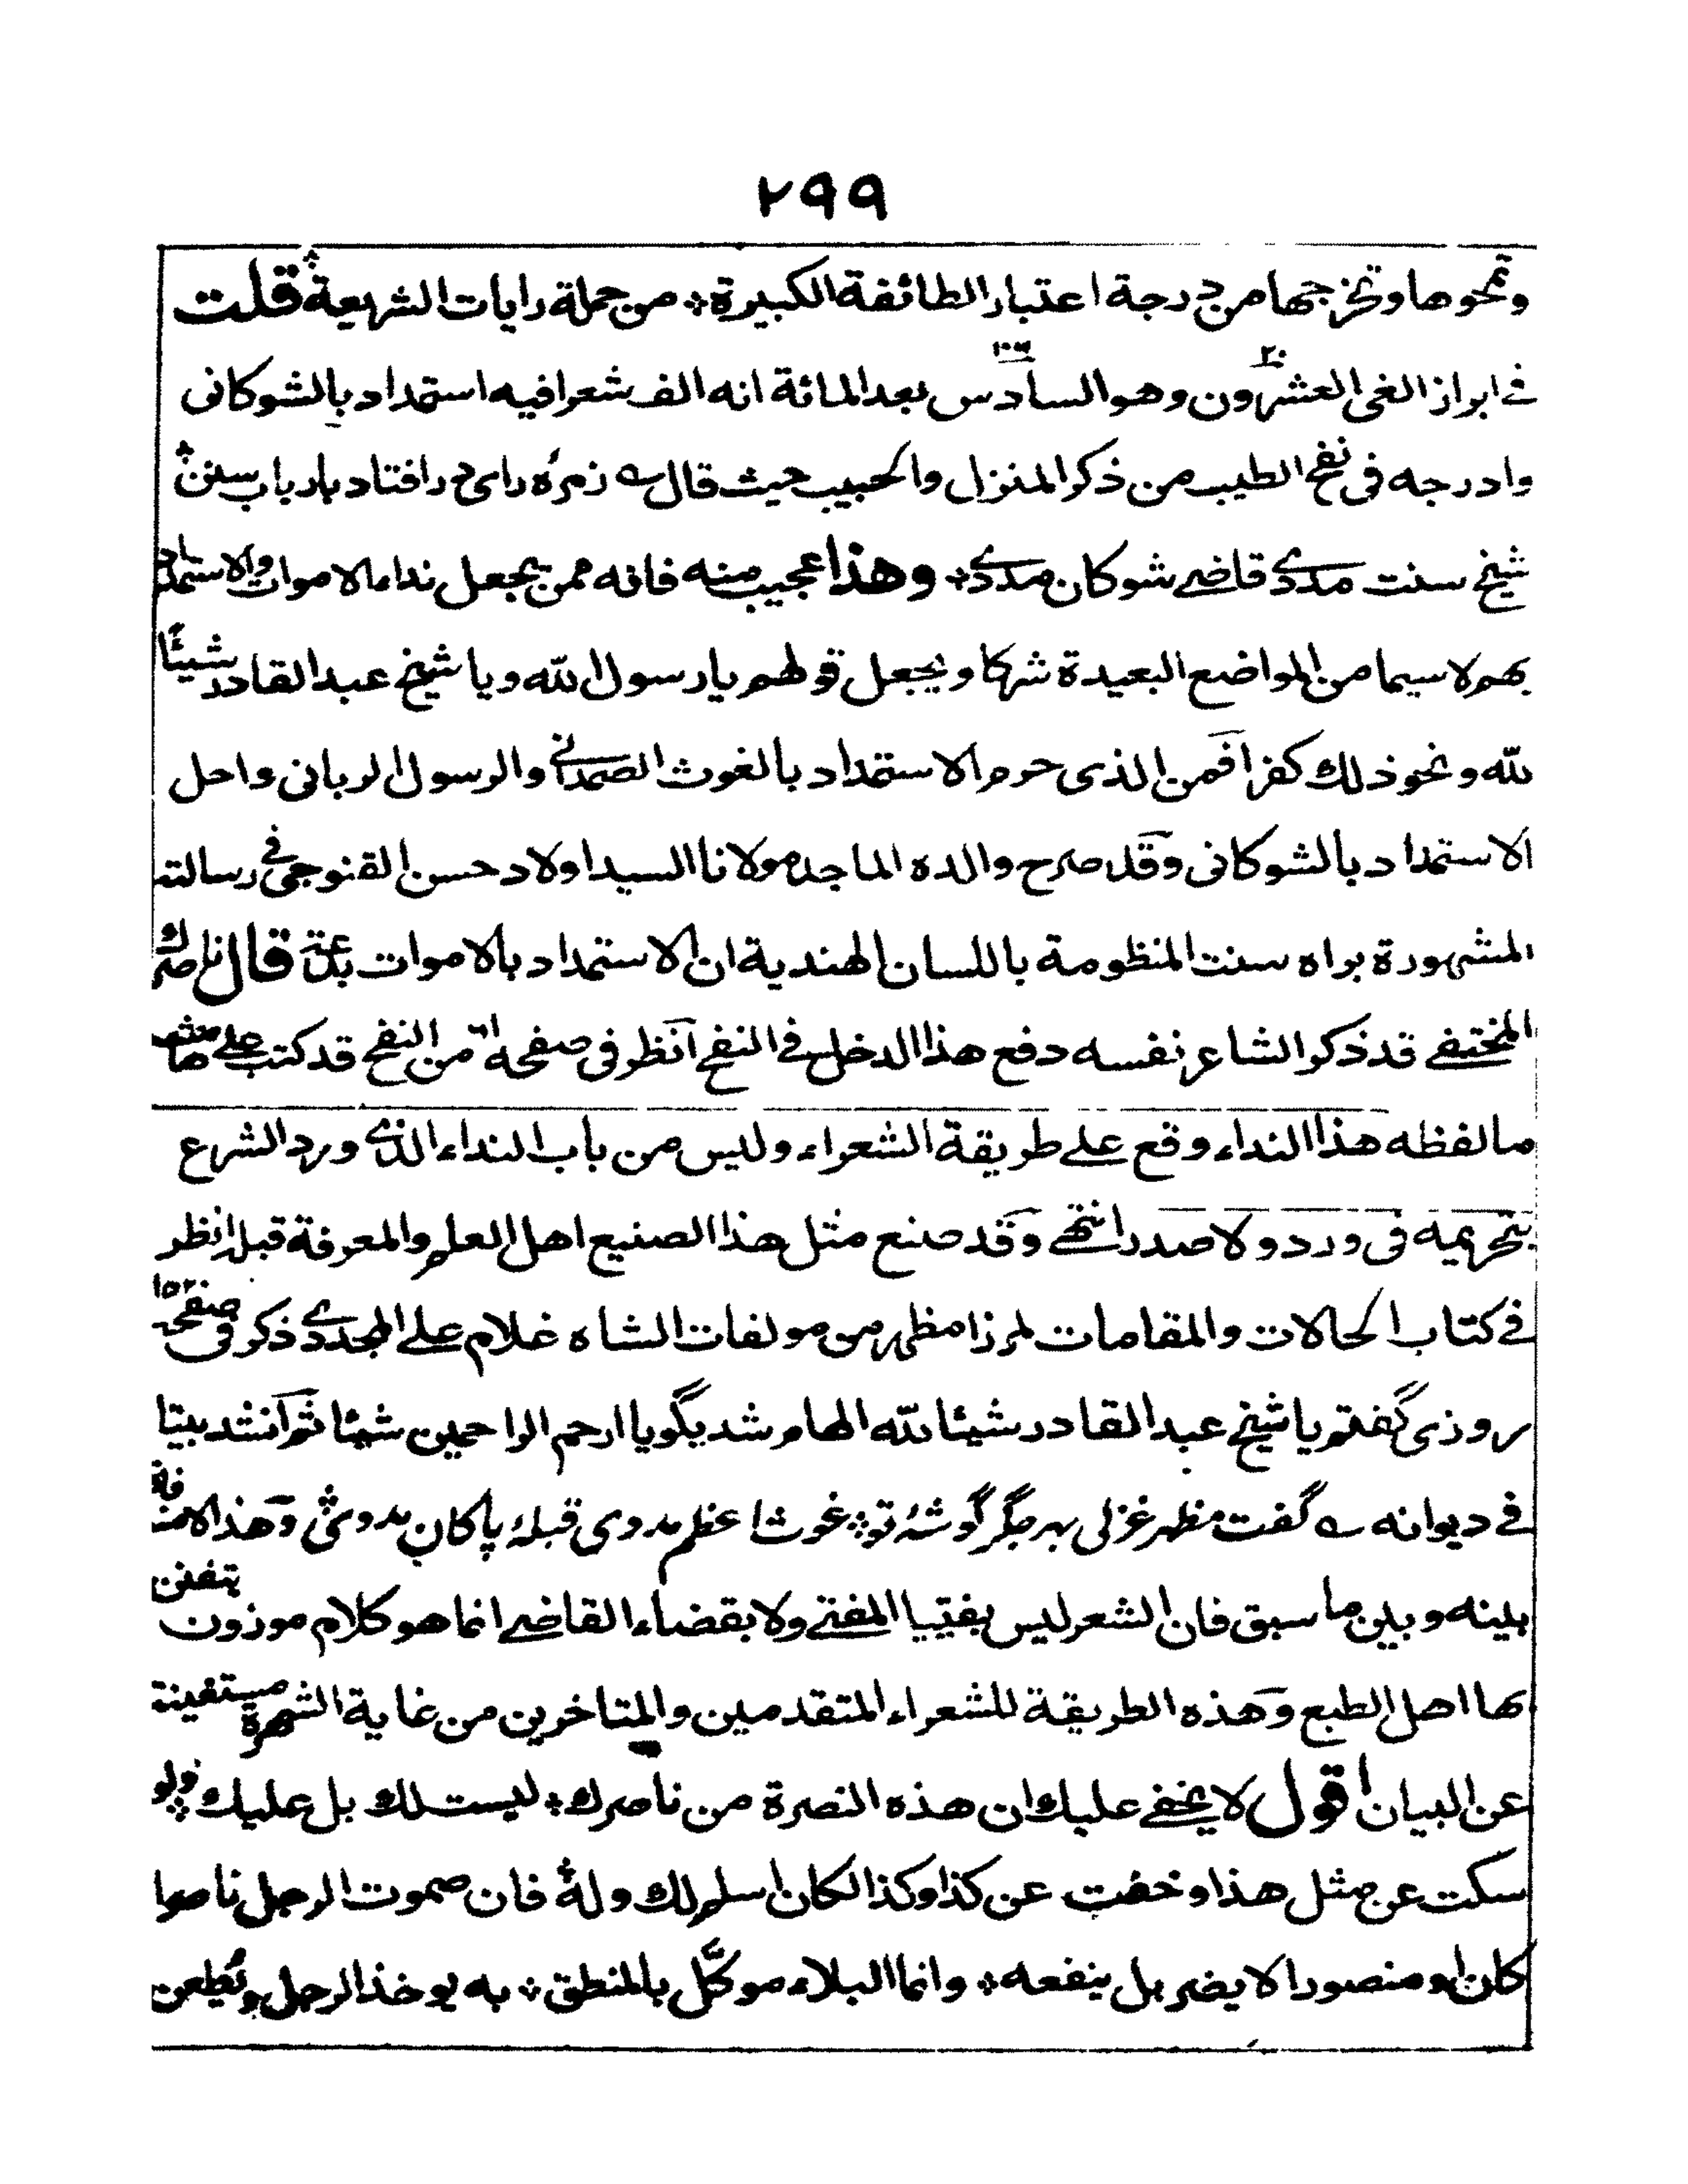 ٢٩٩
وتمحوها وتخرجها من درجة اعتبار الطائفة الكبيرة ؞ من جملة رايات الشريعة ؞ قلت
فى ابراز الغى العشرون وهو السادس بعد المائة انه الف شعرا فيه استمداد بالشوكانى
وادرجه فى نفح الطيب من ذكر المنزل والحبيب حيث قال ے زمرۂ راى در افتاد بارباب سنن ؞
شيخ سنت مددى قاضے شوكان مددى ؞ وهذا عجيب منه فانه ممن يجعل نداء الاموات والاستمداد
بهم لا سيما من المواضع البعيدة شركا ويجعل قولهم يا رسول الله ويا شيخ عبد القادر شيئًا
لله ونحو ذلك كفرا فمن الذى حرم الاستمداد بالغوث الصمدانى والرسول الربانى واحل
الاستمداد بالشوكانى وقد صرح والده الماجد مولانا السيد اولاد حسن القنوجى فى رسالته
المشهورة براه سنت المنظومة باللسان الهندية ان الاستمداد بالاموات بدعة قال ناصرك
المختفے قد ذكر الشاعر نفسه دفع هذا الدخل فى النفح انظر فى صفحة من النفح قد كتب على هامشه
ما لفظه هذا النداء وقع علے طريقة الشعراء وليس من باب النداء الذى ورد الشرع
بتحريمه فى ورد ولا صدر انتهى وقد صنع مثل هذا الصنيع اهل العلم والمعرفة قبله انظر
فى كتاب الحالات والمقامات لمرزا مظهر من مولفات الشاه غلام على المجددى ذكر فى صفحة ١٥٢
روزى گفتم يا شيخ عبد القادر شيئا لله الهام شد بگو يا ارحم الراحمين شيئا ثم انشد بيتا
فى ديوانه ے گفت مظهر غزلى بهر جگر گوشۂ تو ؞ غوث اعظم مددى قبلۂ پاكان مددى ؞ وهذا لا منافاة
بينه وبين ما سبق فان الشعر ليس بفتيا المفتے ولا بقضاء القاضے انما هو كلام موزون يتفنن
بها اهل الطبع وهذه الطريقة للشعراء المتقدمين والمتاخرين من غاية الشهرة مستغنية
عن البيان اقول لا يخفے عليك ان هذه النصرة من ناصرك ؞ ليست لك بل عليك ؞ ولو
سكت عن مثل هذا وخفت عن كذا وكذا لكان اسلم لك وله ؞ فان صموت الرجل ناصرا
كان او منصورا لا يضر بل ينفعه ؞ وانما البلاء موكّل بالمنطق ؞ به يوخذ الرجل ويُطعن